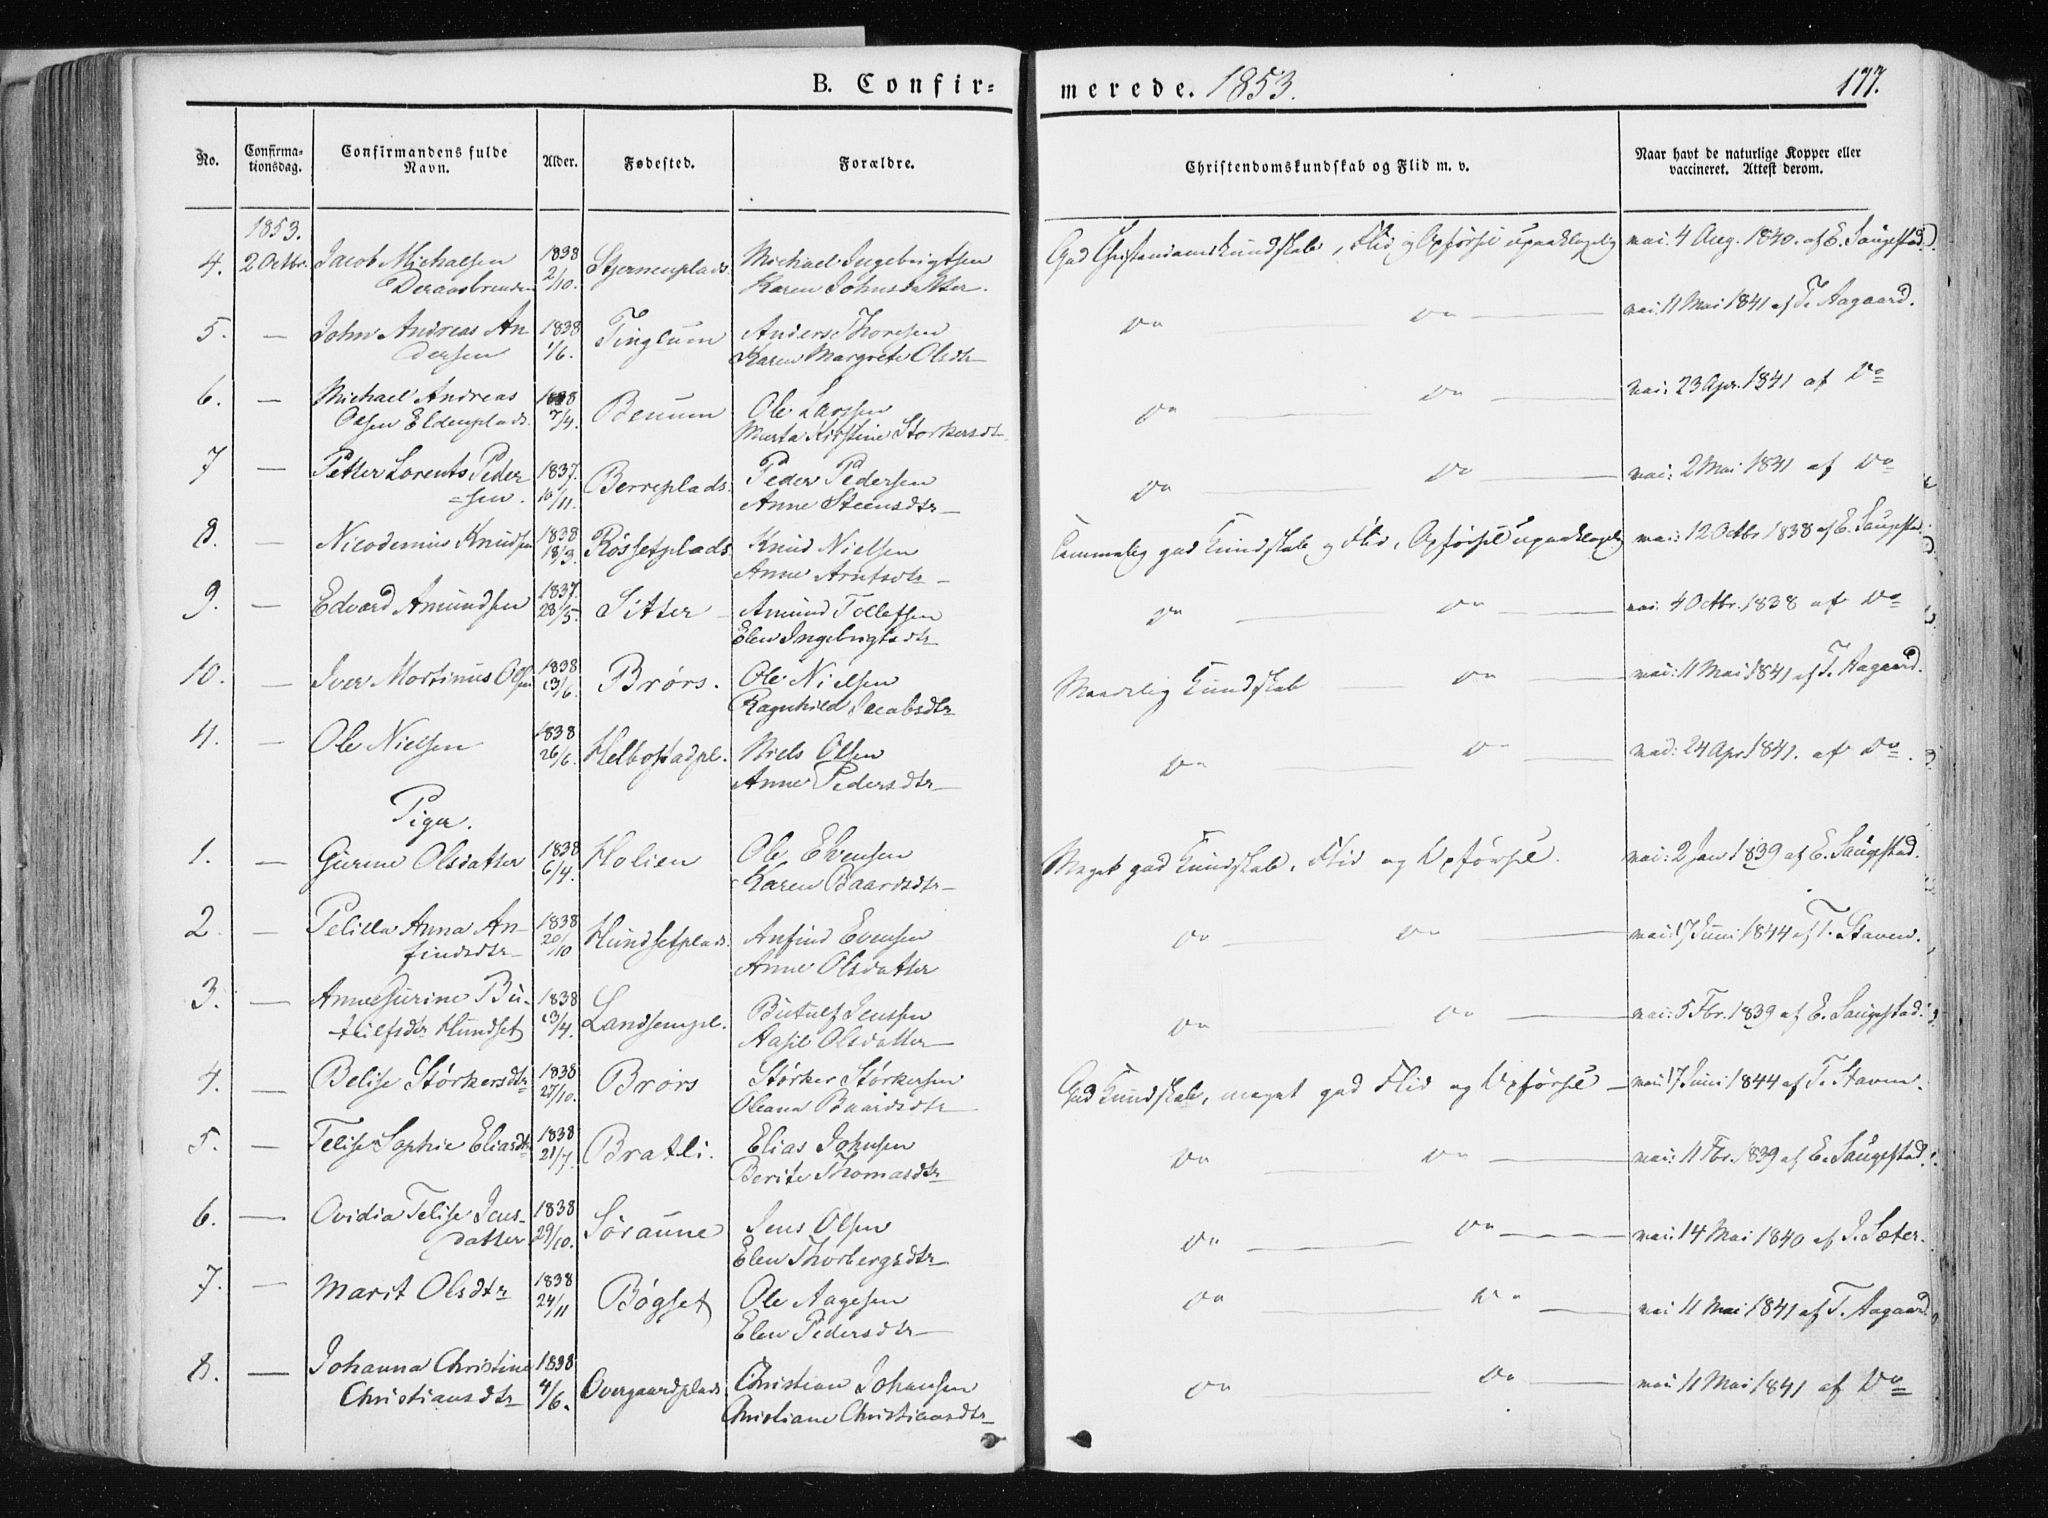 B. Confir-
merede. 1853.
177.
No. Confirma-tionsdag. Confirmandens fulde Navn. Alder. Fødested. Forældre. Christendomskundskab og Flid m. v. Naar havt de naturlige Kopper eller vaccineret. Attest derom.
1853.
4. 2 Octbr. Jacob Michaelsen 1838 Stjernenplads. Michael Ingebrigtsen God Christendomskundskab, Flid og Opførsel upaaklagelig vac: 4 Aug. 1840. af E. Saugestad.
2/10. Karen Johnsdatter.
5. — John Andreas An 1838 Tinglum Anders Thoresen Do — Do — vac: 11 Mai 1841 af T. Aagaard.
dersen 1/6. Karen Margrete Olsdtr
6. — Michael Andreas 1838 Benum Ole Larssen Do — Do — vac: 23 Apr. 1841 af Do
Olsen Eldenplads. 7/4. Marta Kirstine Storkersdtr
7 — Petter Lorents Peder 1837. Berreplads. Peder Pedersen Do — Do — vac: 2 Mai 1841 af Do
=sen. 10/11. Anne Steensdtr
8. — Nicodemus Knudsen 1838 Rössetplads Knud Nielsen Temmelig god Kundskab og Flid, Opførsel upaaklagelig vac: 12 Octbr 1838 af E. Saugestad.
18/3. Anne Arntsdtr
9. — Edvard Amundsen 1837. Sitter Amund Tollefsen Do — Do — vac: 4 Octbr. 1838 af Do
28/5. Elen Ingebrigtsdtr
10. — Iver Mortinus Olsen 1838 Brørs. Ole Nielsen Maadelig Kundskab — Do — vac: 11 Mai 1841 af T. Aagaard.
13/6. Ragnhild Jacobsdtr
11. — Ole Nielsen 1838 Helbostadpl. Niels Olsen Do — Do — vac: 24 Apr 1841. af Do.
26/6. Anne Pedersdtr
Piger.
1. — Gurine Olsdatter 1838 Holien Ole Evensen Meget god Kundskab, Flid og Opførsel. vac: 2 Jan 1839 af E. Saugestad.
6/4. Karen Baardsdtr
2. — Pelilla Anna An- 1838 Hundsetplads. Anfind Evensen Do — Do — vac: 17 Juni 1844 af T. Staven.
findsdtr 20/10 Anne Olsdatter
3. — Anne Gurine Bu- 1838 Landsempl. Butulf Jenssen Do — Do — vac: 5 Fbr. 1839 af E. Saugestad.
tulfsdtr Hundset 13/4. Aasil Olsdatter
4. — Belise Størkersdtr 1838 Brørs Størker Størkersen God Kundskab, meget god Flid og Opførsel — vac: 17 Juni 1844 af T. Staven.
27/10. Oleana Baardsdtr
5. — Felise Sophie Eliasdtr 1838 Bratli. Elias Johnsen Do — Do — vac: 11 Fbr. 1839 af E. Saugestad.
21/7. Berite Thomasdtr
6. — Ovidia Felise Jens- 1838 Søraune Jens Olsen Do — Do — vac: 14 Mai 1840 af J. Sæter.
datter 29/10. Elen Thorbergsdtr
7. — Marit Olsdtr 1838 Bøgset Ole Aagesen Do — Do — vac 11 Mai 1841 af T. Aagaard.
24/11 Elen Pedersdtr
8. — Johanna Christine 1838 Overgaardplads Christian Johansen Do — Do — vac: 11 Mai 1841 af Do
Christiansdtr 4/6. Christiane Christiansdtr